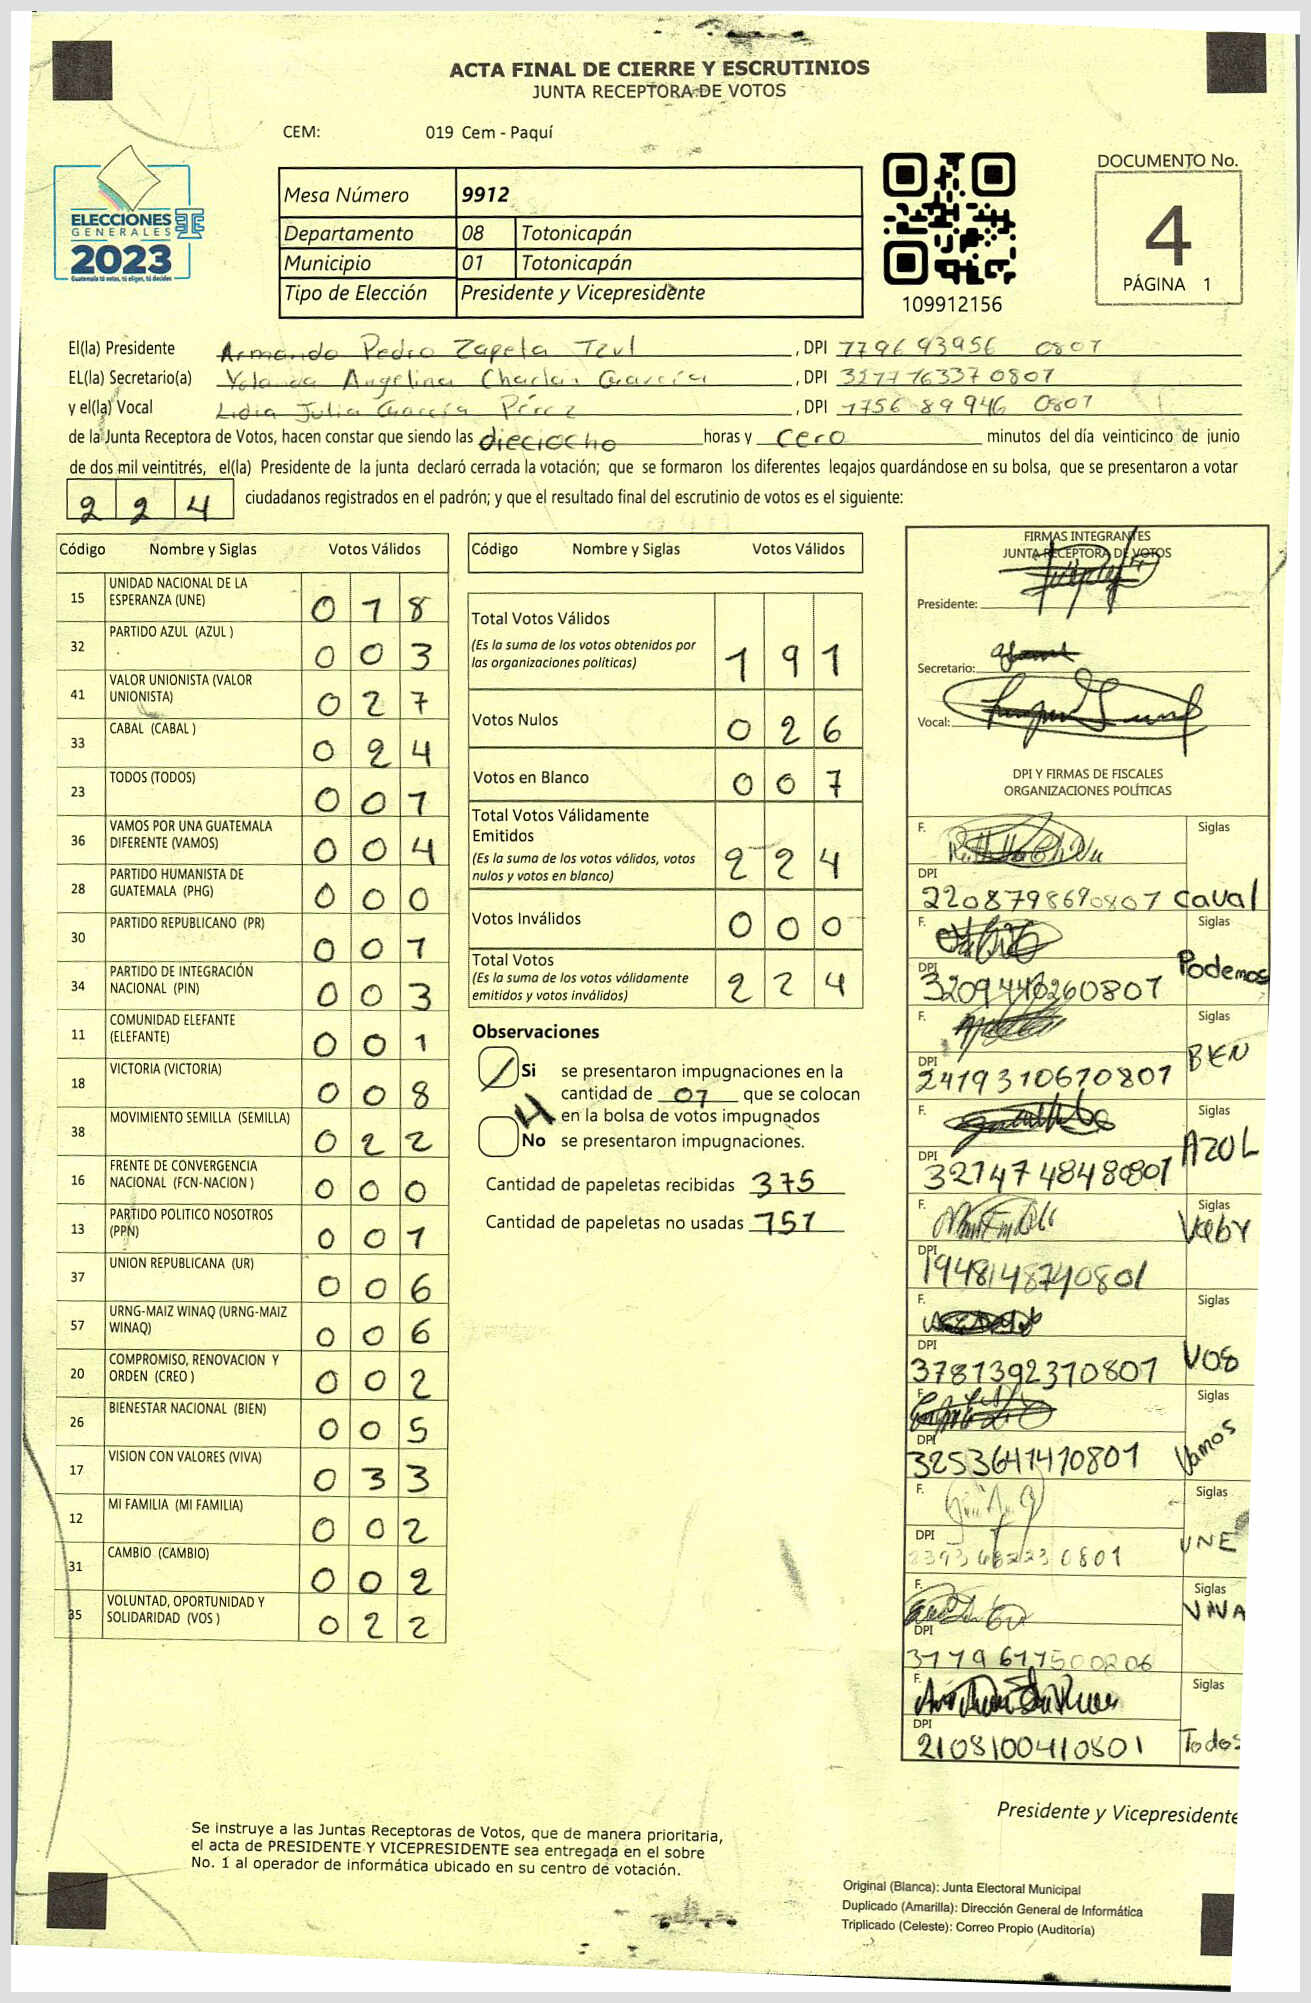 ACTA FINAL DE CIERRE Y ESCRUTINIOS
JUNTA RECEPTORA DE VOTOS
CEM: 019 Cem - Paquí
ELECCIONES
GENERALES
2023
Guatemala tú votas, tú eliges, tú decides
Mesa Número 9912
Departamento 08 Totonicapán
Municipio 01 Totonicapán
Tipo de Elección Presidente y Vicepresidente
109912156
DOCUMENTO No.
4
PÁGINA 1
El(la) Presidente Armando Pedro Zapeta Tzul , DPI 779693956 0807
EL(la) Secretario(a) Yolanda Angelina García , DPI 327776337 0807
y el(la) Vocal Lidia Julia García Pérez , DPI 1756 89946 0807
de la Junta Receptora de Votos, hacen constar que siendo las dieciocho horas y cero minutos del día veinticinco de junio
de dos mil veintitrés, el(la) Presidente de la junta declaró cerrada la votación; que se formaron los diferentes legajos guardándose en su bolsa, que se presentaron a votar
224 ciudadanos registrados en el padrón; y que el resultado final del escrutinio de votos es el siguiente:
Código Nombre y Siglas Votos Válidos
15 UNIDAD NACIONAL DE LA ESPERANZA (UNE) 018
32 PARTIDO AZUL (AZUL ) 003
41 VALOR UNIONISTA (VALOR UNIONISTA) 027
33 CABAL (CABAL ) 024
23 TODOS (TODOS) 001
36 VAMOS POR UNA GUATEMALA DIFERENTE (VAMOS) 004
28 PARTIDO HUMANISTA DE GUATEMALA (PHG) 000
30 PARTIDO REPUBLICANO (PR) 001
34 PARTIDO DE INTEGRACIÓN NACIONAL (PIN) 003
11 COMUNIDAD ELEFANTE (ELEFANTE) 001
18 VICTORIA (VICTORIA) 008
38 MOVIMIENTO SEMILLA (SEMILLA) 022
16 FRENTE DE CONVERGENCIA NACIONAL (FCN-NACION ) 000
13 PARTIDO POLITICO NOSOTROS (PPN) 001
37 UNION REPUBLICANA (UR) 006
57 URNG-MAIZ WINAQ (URNG-MAIZ WINAQ) 006
20 COMPROMISO, RENOVACION Y ORDEN (CREO ) 002
26 BIENESTAR NACIONAL (BIEN) 005
17 VISION CON VALORES (VIVA) 033
12 MI FAMILIA (MI FAMILIA) 002
31 CAMBIO (CAMBIO) 002
35 VOLUNTAD, OPORTUNIDAD Y SOLIDARIDAD (VOS ) 022
Código Nombre y Siglas Votos Válidos
Total Votos Válidos
(Es la suma de los votos obtenidos por las organizaciones políticas) 191
Votos Nulos 026
Votos en Blanco 007
Total Votos Válidamente Emitidos
(Es la suma de los votos válidos, votos nulos y votos en blanco) 224
Votos Inválidos 000
Total Votos
(Es la suma de los votos válidamente emitidos y votos inválidos) 224
Observaciones
Si se presentaron impugnaciones en la
cantidad de 01 que se colocan
en la bolsa de votos impugnados
No se presentaron impugnaciones.
Cantidad de papeletas recibidas 375
Cantidad de papeletas no usadas 151
FIRMAS INTEGRANTES
JUNTA RECEPTORA DE VOTOS
Presidente:
Secretario:
Vocal:
DPI Y FIRMAS DE FISCALES
ORGANIZACIONES POLÍTICAS
F. Siglas
DPI
2208798690807 Caval
F. Siglas
DPI Podemos
3209440260801
F. Siglas
DPI BIEN
2419310670801
F. Siglas
DPI AZUL
3214748480801
F. Siglas
DPI
1948148740801
F. Siglas
DPI VOS
3781392310801
F. Siglas
DPI Vamos
3253641410801
F. Siglas
DPI UNE
F. Siglas
DPI VIVA
F. Siglas
DPI
2108100410801 Todos
Presidente y Vicepresidente
Se instruye a las Juntas Receptoras de Votos, que de manera prioritaria,
el acta de PRESIDENTE Y VICEPRESIDENTE sea entregada en el sobre
No. 1 al operador de informática ubicado en su centro de votación.
Original (Blanca): Junta Electoral Municipal
Duplicado (Amarilla): Dirección General de Informática
Triplicado (Celeste): Correo Propio (Auditoría)